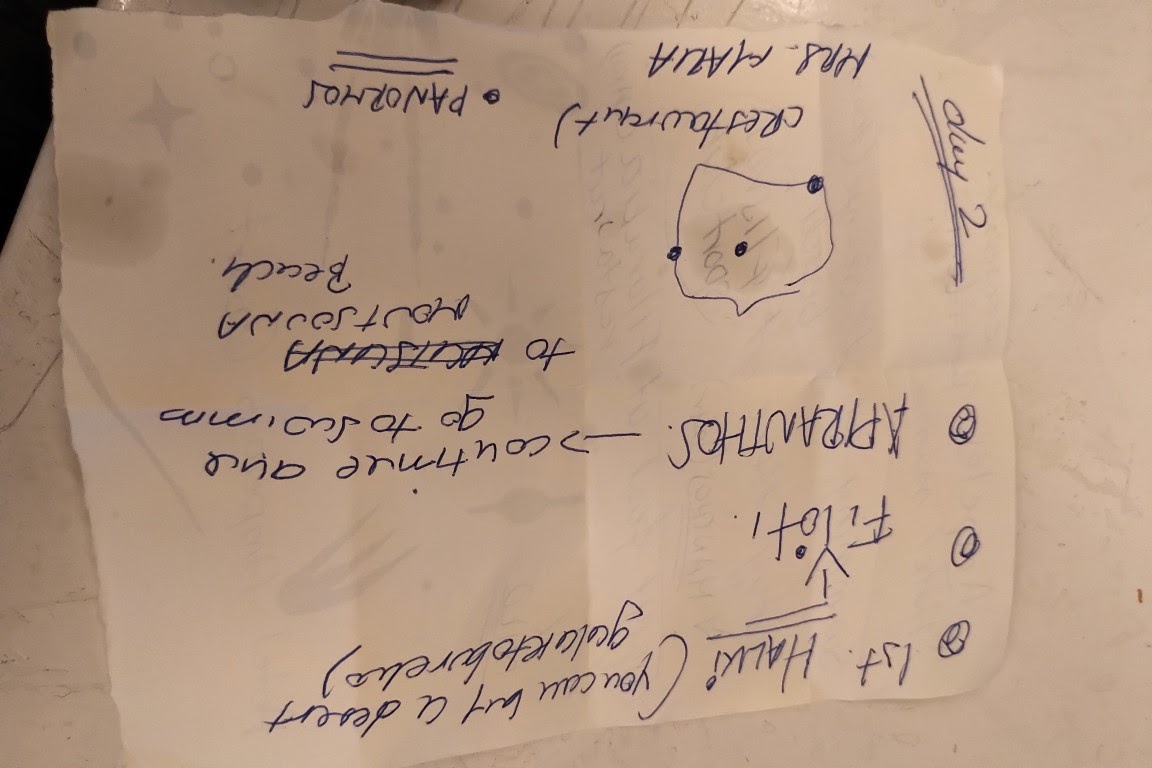 1st. HALKi (you can buy a desert
galaktobureko)
Filoti.
APIRANTHOS. → continue and
go to swimm
to
MOUTSOUNA
Beach.
day 2
(Restaurant)
MRS. MARIA
• PANORMOS